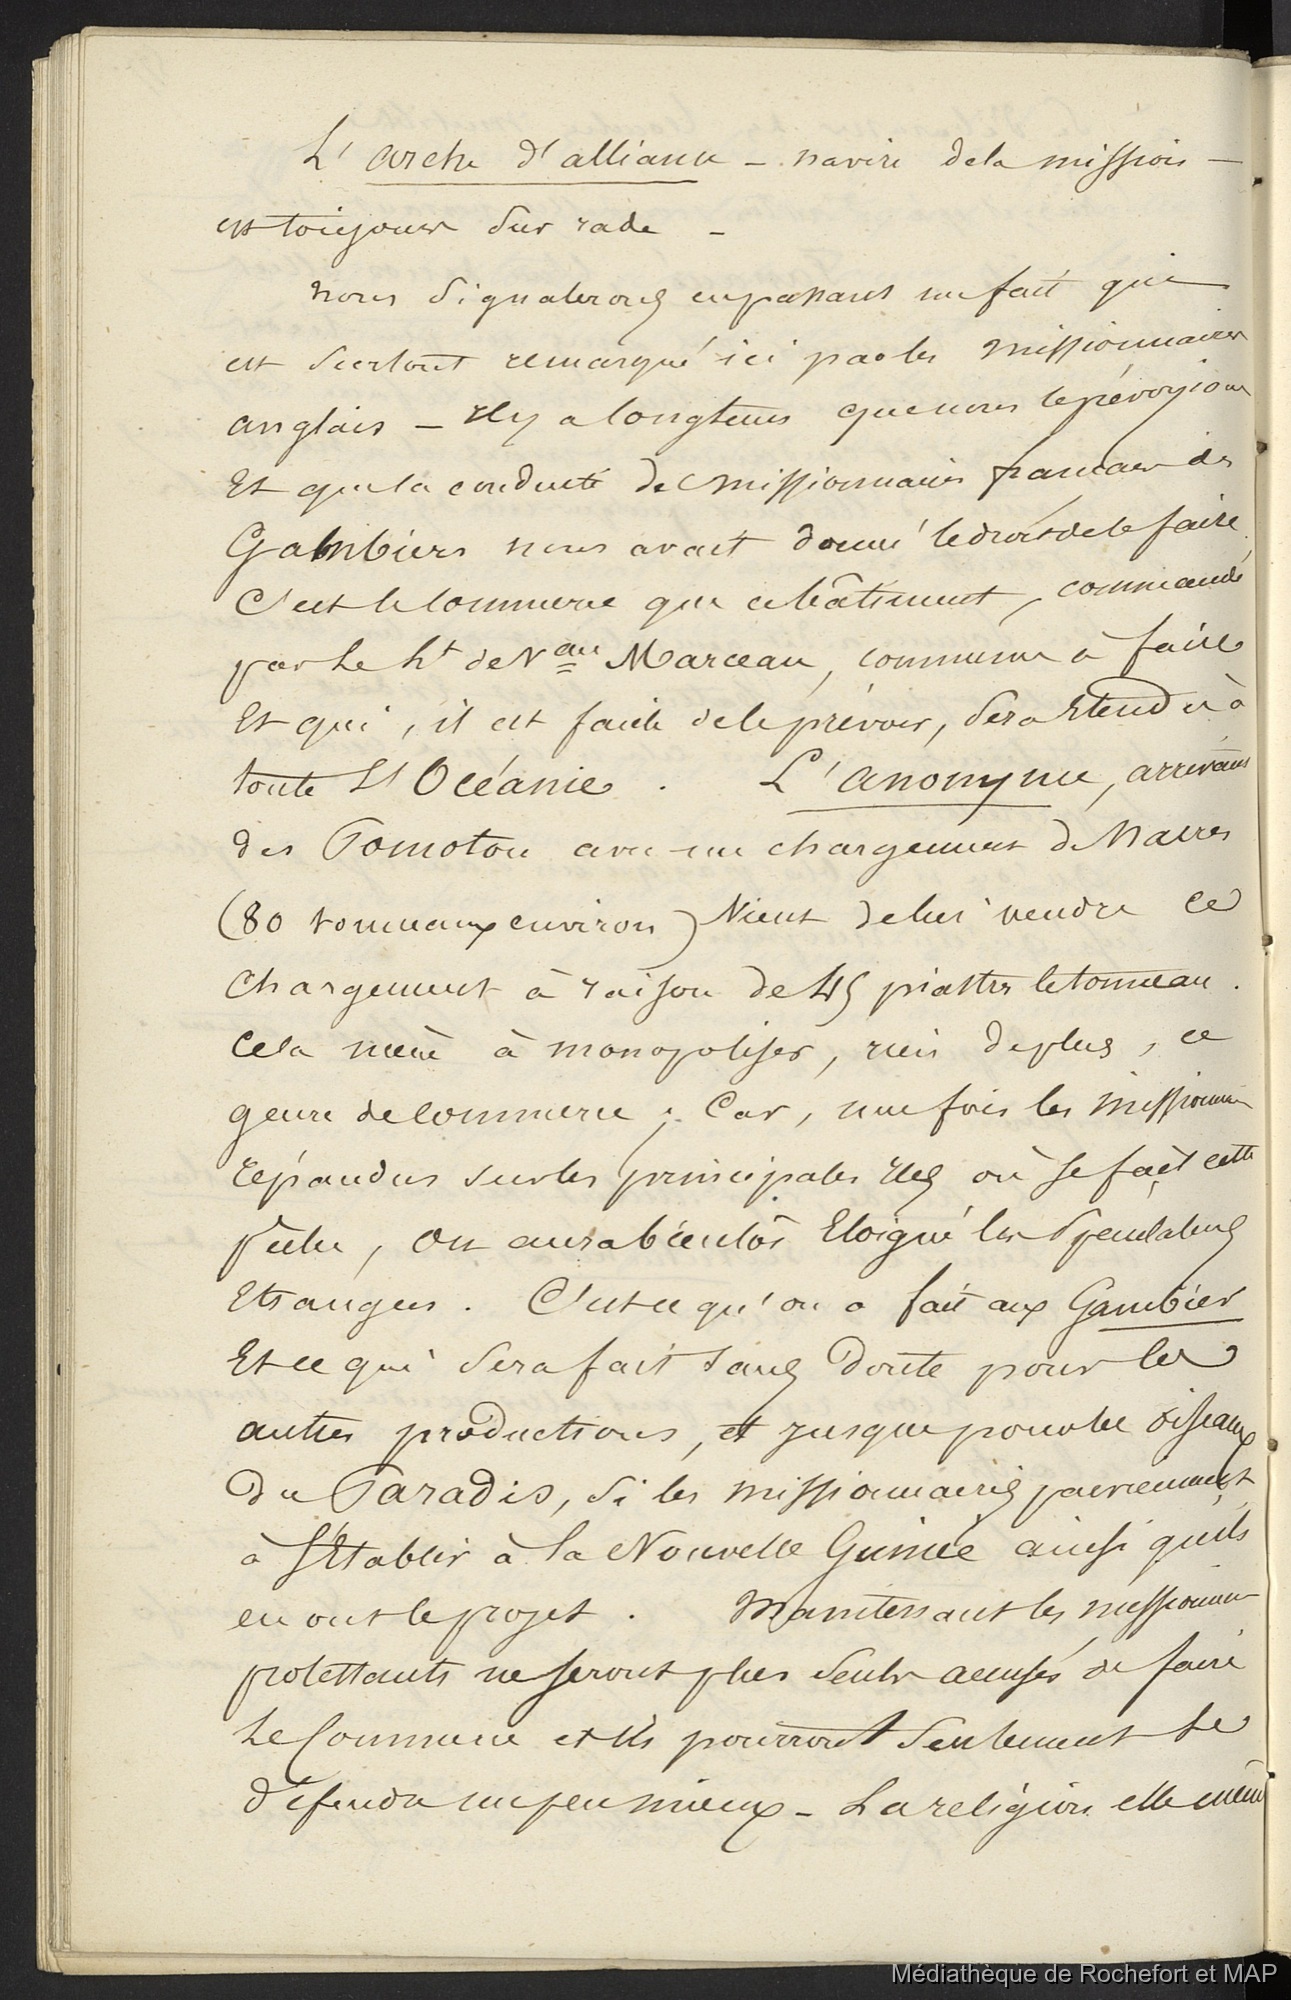 L'arche d'alliance – navire de la mission –
est toujours sur rade –
Nous signalerons en passant un fait qui
est surtout remarqué ici par les missionnaires
anglais – Il y a longtems que nous le prévoyions
Et que la conduite des missionnaires français des
Gambiers nous avait donné le droit de le faire.
C'est le commerce que ce bâtiment, commandé
par le Lt de Vau Marceau, commence à faire
Et qui, il est facile de le prévoir, sera Etendu à
toute L'Océanie. L'anonyme, arrivant
des Pomotou avec un chargement de Nacres
(80 tonneaux environ) Vient de lui vendre ce
Chargement à raison de 45 piastres le tonneau.
Cela mène à monopoliser, rien de plus, ce
genre de commerce ; Car, une fois les missionnaires
répandus sur les principales Iles où se fait cette
pêche, on aura bientôt Eloigné les Spéculateurs
Etrangers. C'est ce qu'on a fait aux Gambier
Et ce qui sera fait sans doute pour les
autres productions, et jusque pour les oiseaux
du Paradis, si les missionnaires parviennent
à s'Etablir à la Nouvelle Guinée ainsi qu'ils
en ont le projet. Maintenant les missionnaires
protestants ne seront plus seuls accusés de faire
le Commerce et ils pourront seulement se
défendre un peu mieux – La religion elle même
Médiathèque de Rochefort et MAP